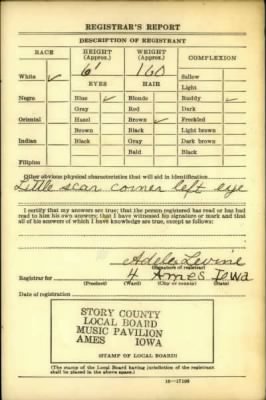 REGISTRAR'S REPORT
DESCRIPTION OF REGISTRANT
RACE HEIGHT (Approx.) WEIGHT (Approx.) COMPLEXION
White ✓ 6' 160 Sallow
EYES HAIR Light
Negro Blue ✓ Blonde Ruddy ✓
Gray Red Dark
Oriental Hazel Brown ✓ Freckled
Brown Black Light brown
Indian Black Gray Dark brown
Bald Black
Filipino
Other obvious physical characteristics that will aid in identification
Little scar corner left eye
I certify that my answers are true; that the person registered has read or has had
read to him his own answers; that I have witnessed his signature or mark and that
all of his answers of which I have knowledge are true, except as follows:
Adela Levine
(Signature of registrar)
Registrar for 4 Ames Iowa
(Precinct) (Ward) (City or county) (State)
Date of registration
STORY COUNTY
LOCAL BOARD
MUSIC PAVILION
AMES IOWA
(STAMP OF LOCAL BOARD)
(The stamp of the Local Board having jurisdiction of the registrant
shall be placed in the above space.)